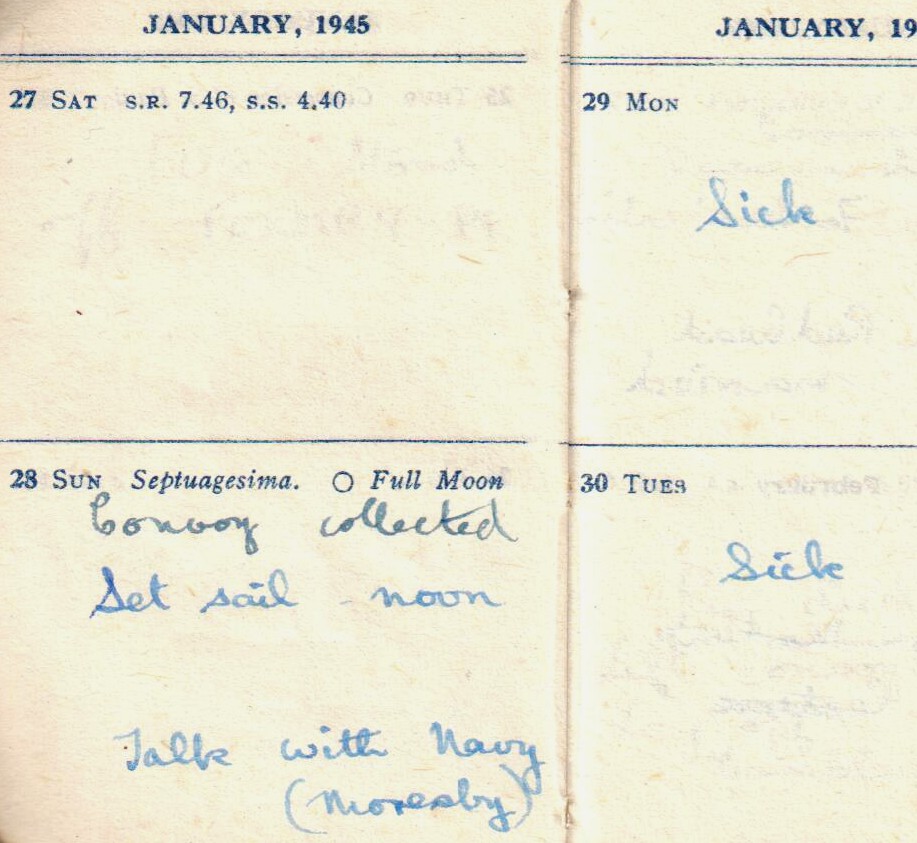 JANUARY, 1945
27 SAT S.R. 7.46, S.S. 4.40
28 SUN Septuagesima. ○ Full Moon
Convoy collected
Set sail - noon
Talk with Navy
(Moresby)
JANUARY, 19
29 MON
Sick
30 TUES
Sick